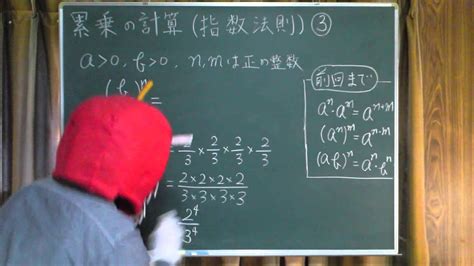 累乗の計算(指数法則)③
a>0, b>0, n,mは正の整数
(b )ⁿ=
= 2/3 × 2/3 × 2/3 × 2/3
= 2×2×2×2 / 3×3×3×3
2⁴/3⁴
前回まで
aⁿ·aᵐ=aⁿ⁺ᵐ
(aⁿ)ᵐ=aⁿ·ᵐ
(a·b)ⁿ=aⁿ·bⁿ